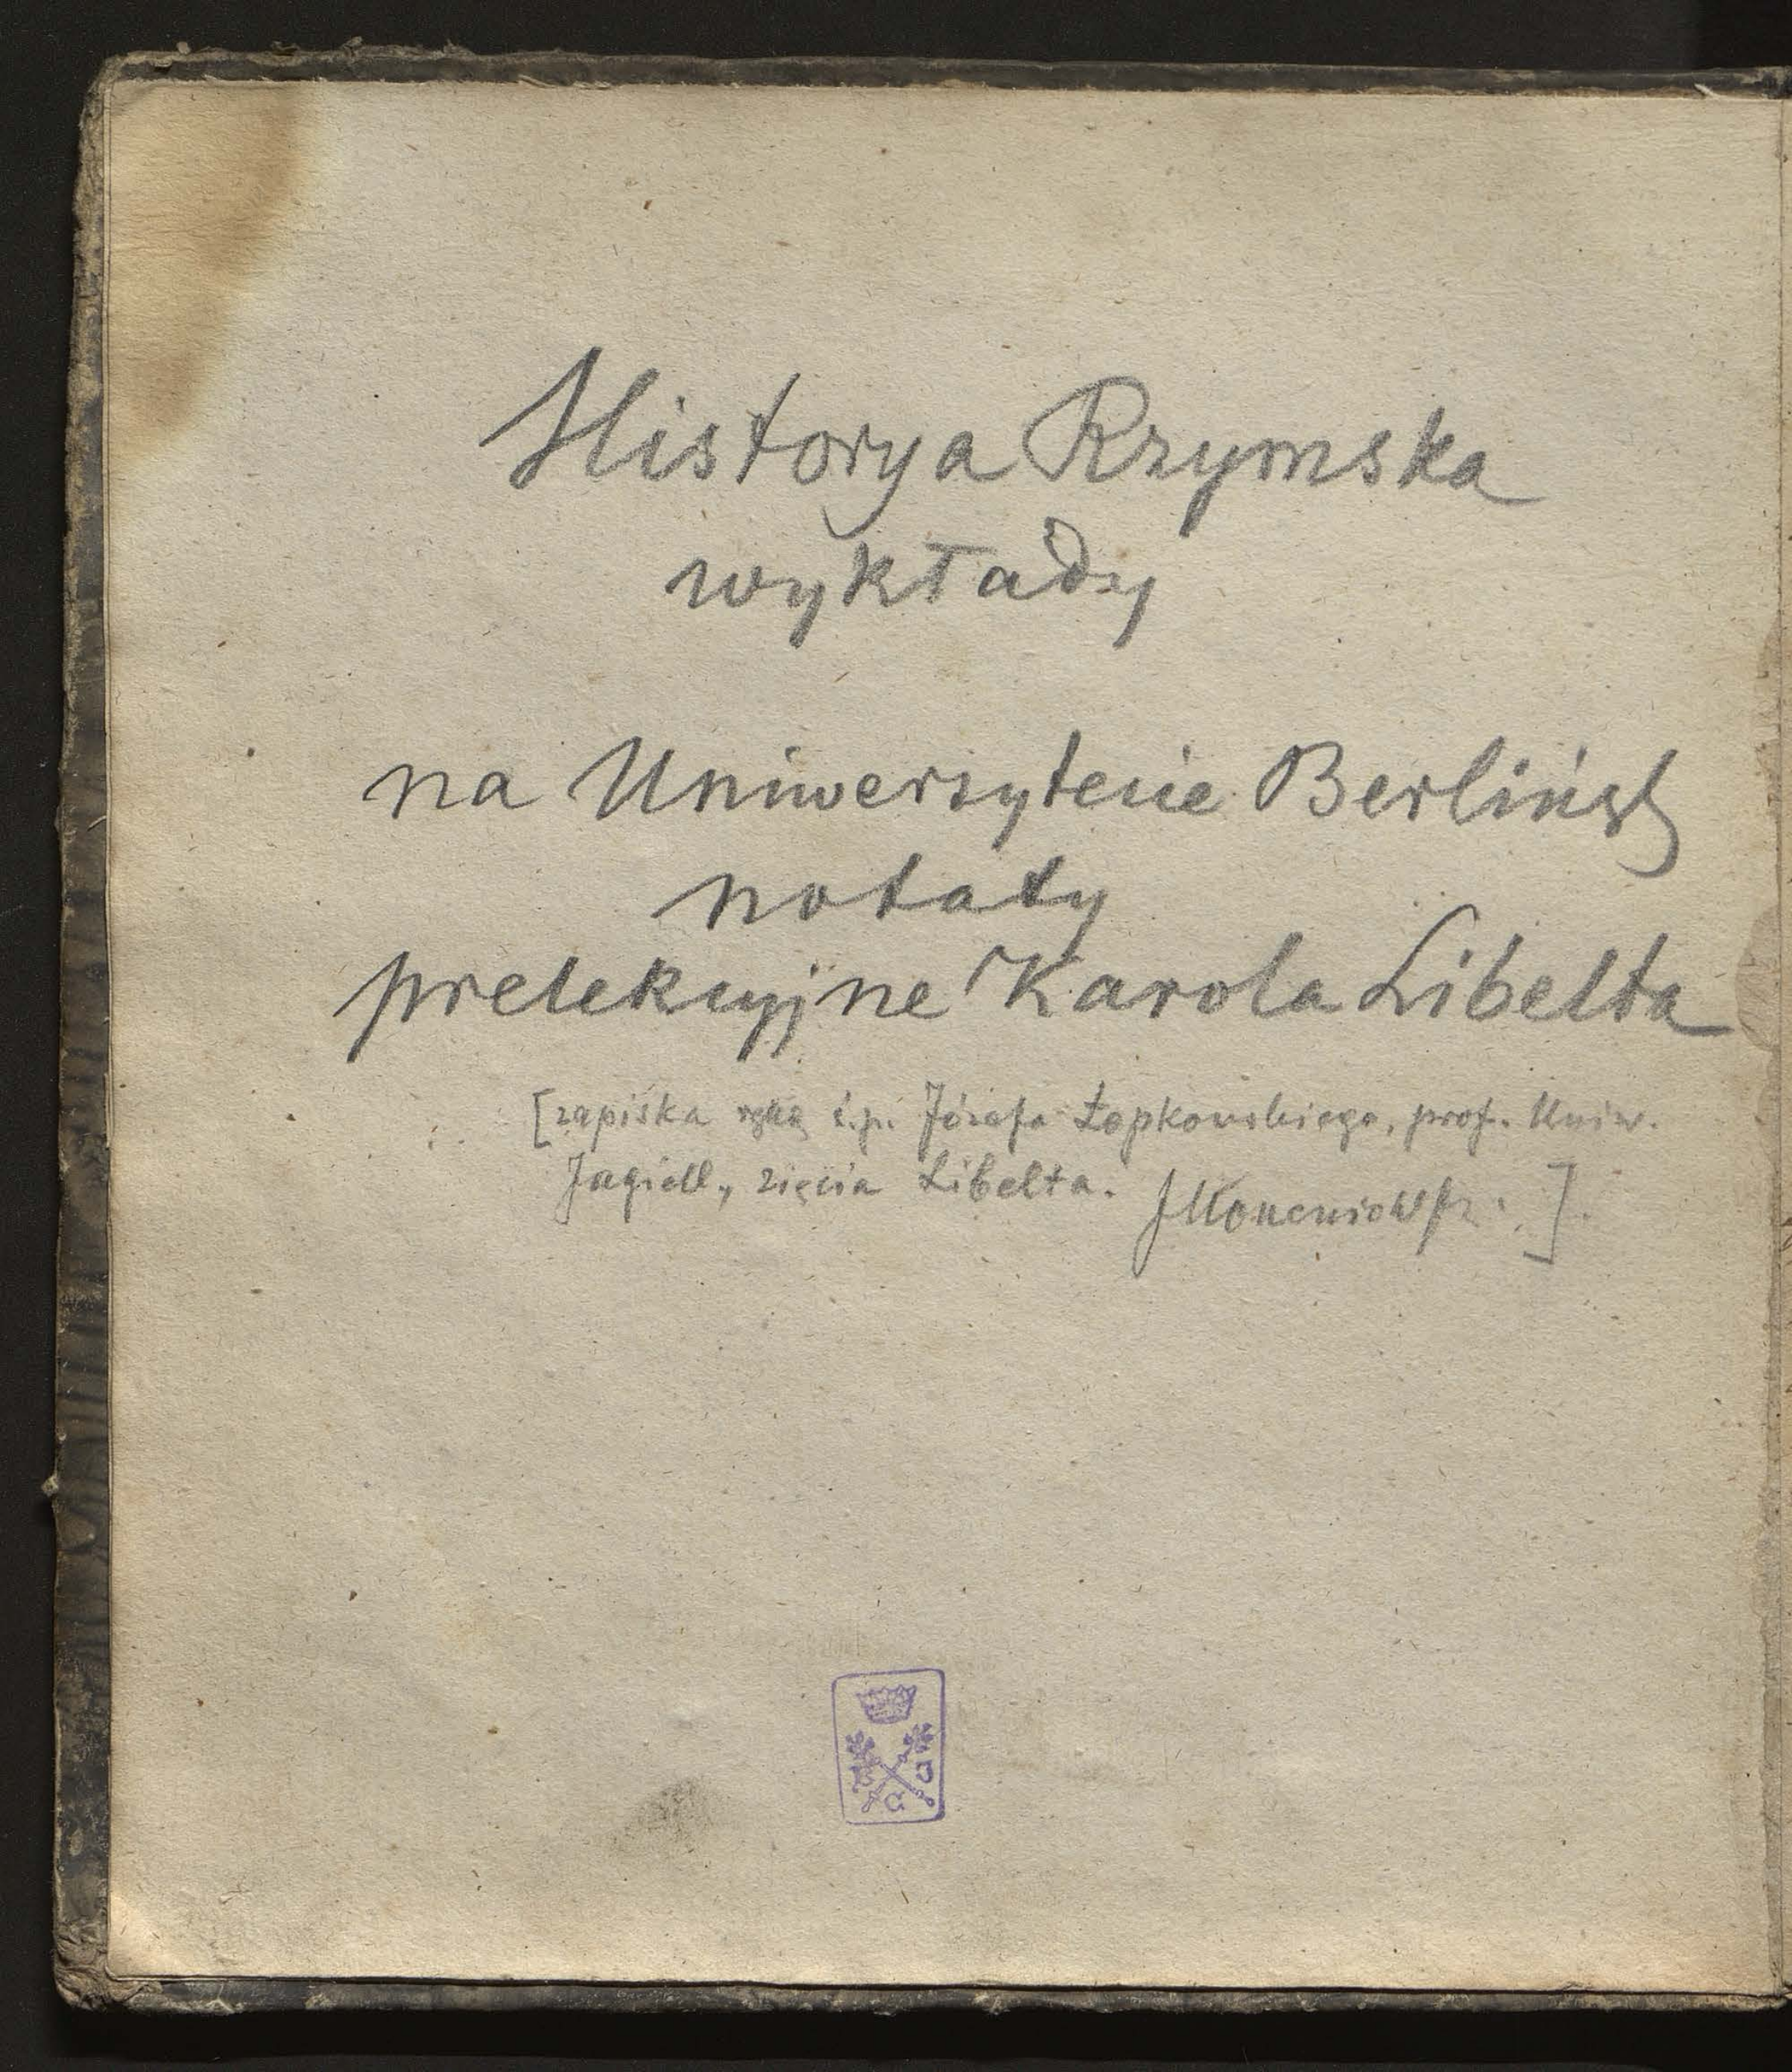 Historya Rzymska
wykłady
na Uniwersytecie Berlińsk
notaty
prelekcyjne Karola Libelta
[zapiska ręką ś.p. Józefa Łepkowskiego, prof. Uniw.
Jagiell., zięcia Libelta. ].